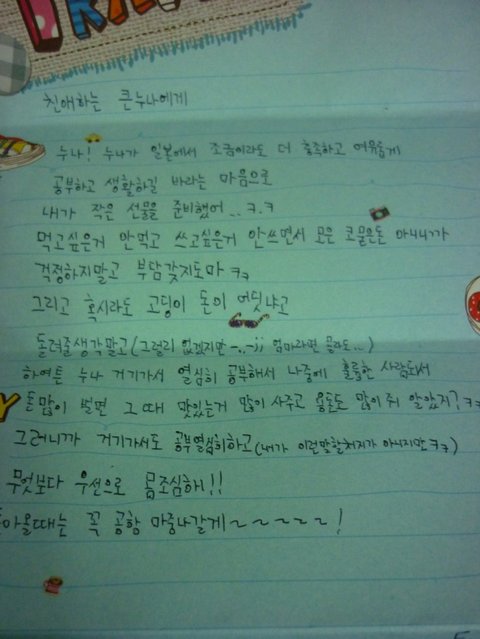 친애하는 큰누나에게
누나! 누나가 일본에서 조금이라도 더 충족하고 여유롭게
공부하고 생활하길 바라는 마음으로
내가 작은 선물을 준비했어..ㅋ.ㅋ
먹고싶은거 안먹고 쓰고싶은거 안쓰면서 모은 코묻은돈 아니니까
걱정하지말고 부담갖지도마 ㅋㅋ
그리고 혹시라도 고딩이 돈이 어딧냐고
돌려줄생각말고(그럴리 없겠지만 -.,-;; 엄마라면 몰라도..)
하여튼 누나 거기가서 열심히 공부해서 나중에 훌륭한 사람되서
돈많이 벌면 그때 맛있는거 많이 사주고 용돈도 많이 줘 알았지?ㅋㅋ
그러니까 거기가서도 공부열심히하고(내가 이런말할처지가 아니지만ㅋㅋ)
무엇보다 우선으로 몸조심해!!
아올때는 꼭 공항 마중나갈게~~~~~!